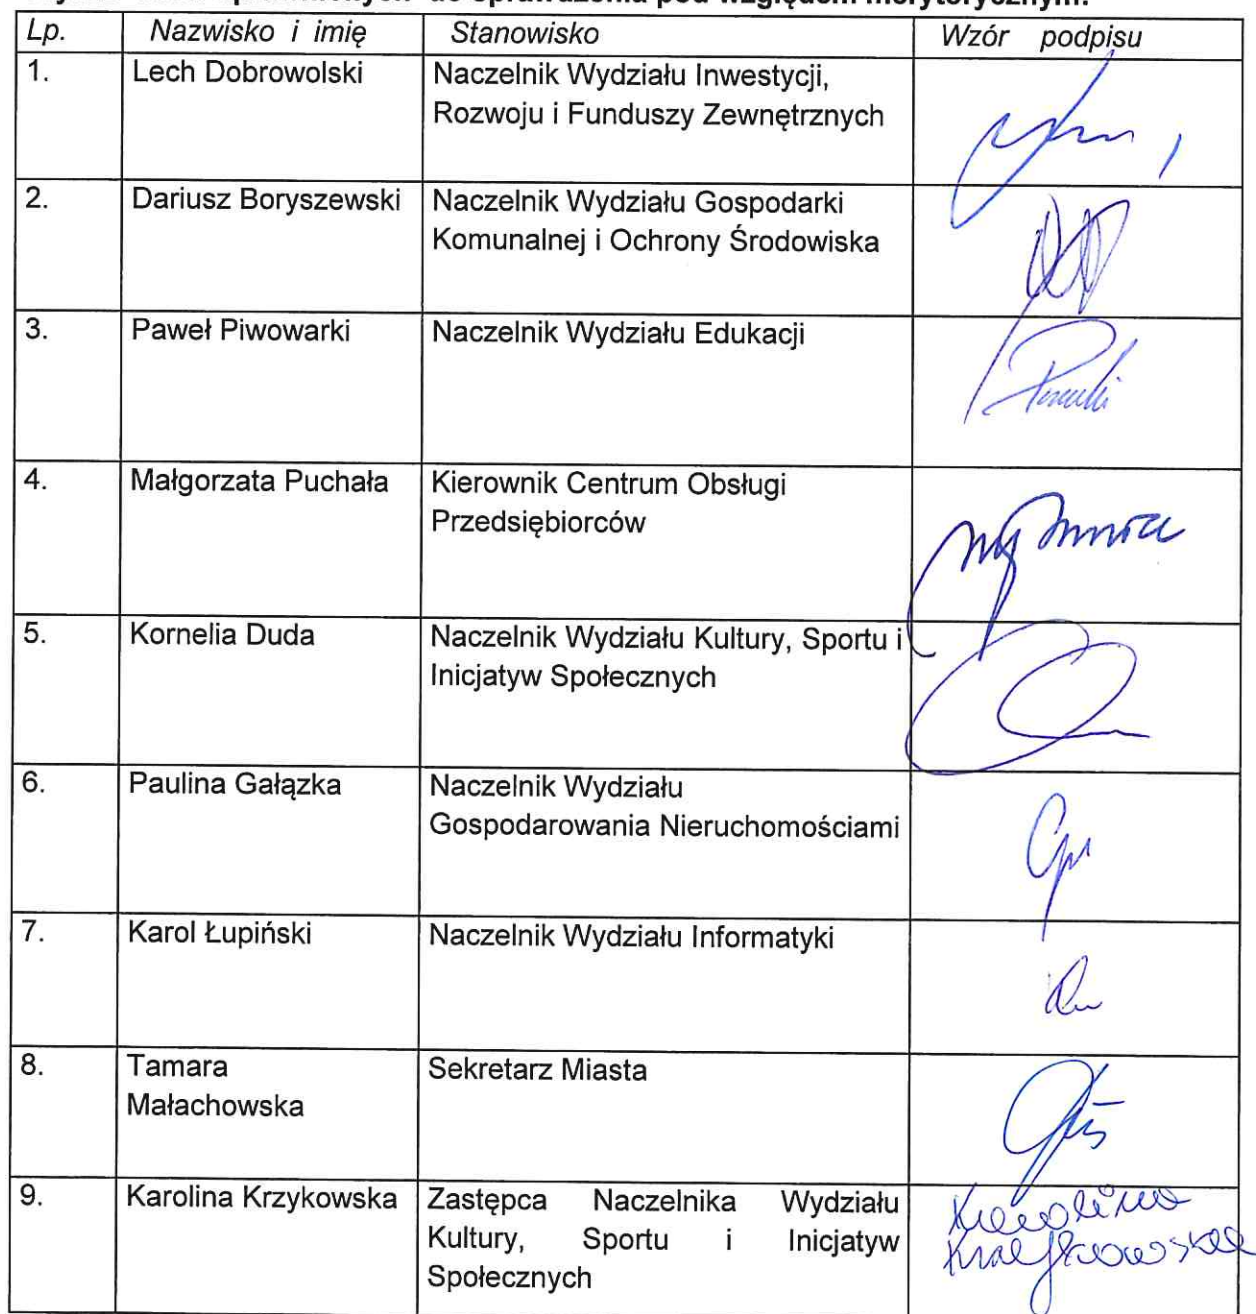 do sprawdzenia pod względem merytorycznym:
Lp. Nazwisko i imię Stanowisko Wzór podpisu
1. Lech Dobrowolski Naczelnik Wydziału Inwestycji,
Rozwoju i Funduszy Zewnętrznych
2. Dariusz Boryszewski Naczelnik Wydziału Gospodarki
Komunalnej i Ochrony Środowiska
3. Paweł Piwowarki Naczelnik Wydziału Edukacji
4. Małgorzata Puchała Kierownik Centrum Obsługi
Przedsiębiorców
5. Kornelia Duda Naczelnik Wydziału Kultury, Sportu i
Inicjatyw Społecznych
6. Paulina Gałązka Naczelnik Wydziału
Gospodarowania Nieruchomościami
7. Karol Łupiński Naczelnik Wydziału Informatyki
8. Tamara Sekretarz Miasta
Małachowska
9. Karolina Krzykowska Zastępca Naczelnika Wydziału Karolina
Kultury, Sportu i Inicjatyw Krzykowska
Społecznych